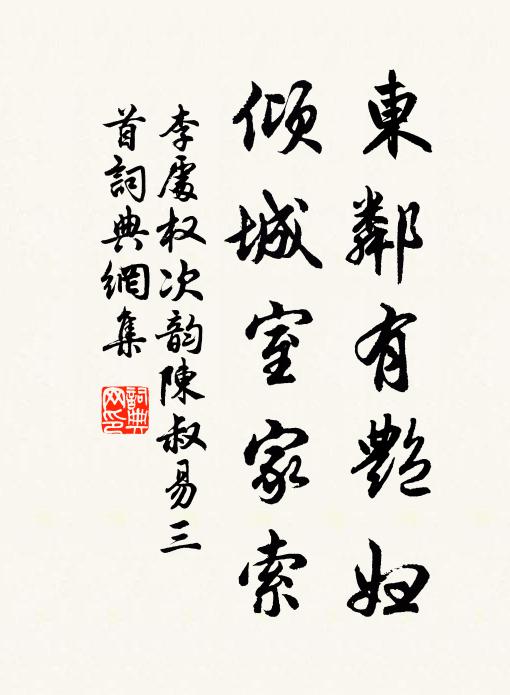 東鄰有艷婦
傾城室家索
李處权次韵陳叔易三
首詞典網集
詞典
网印